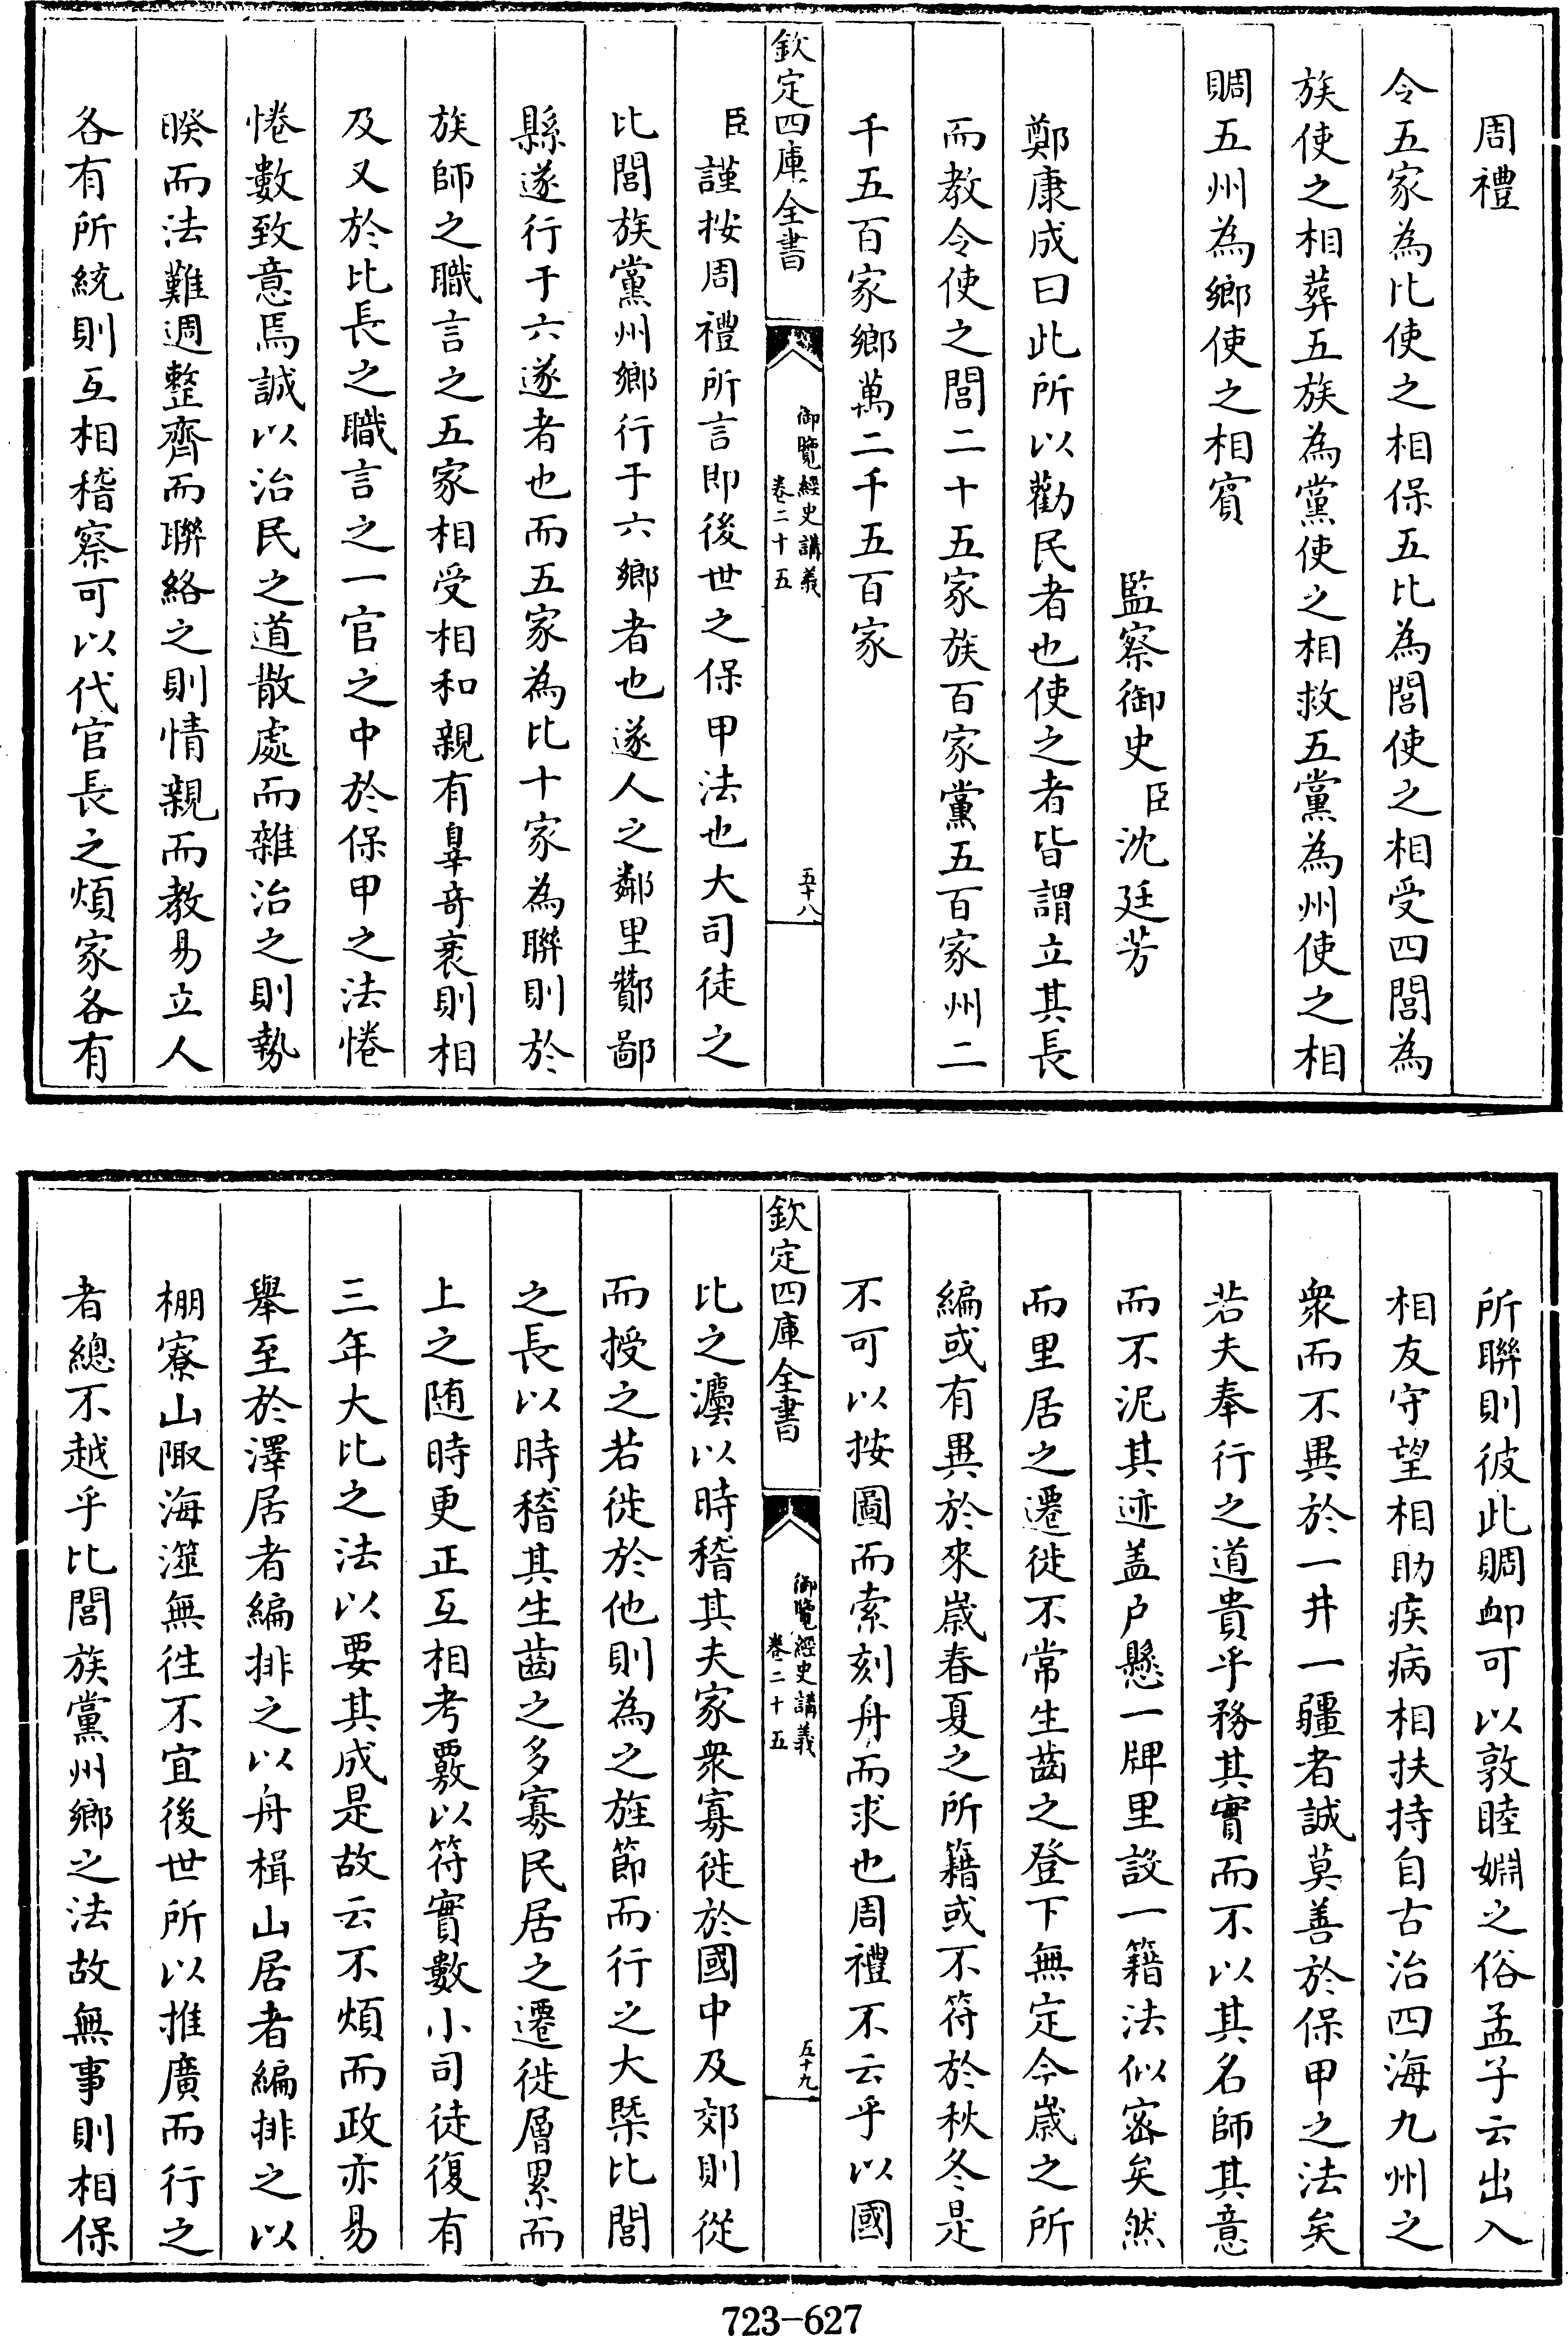 周禮
令五家為比使之相保五比為閭使之相受四閭為
族使之相葬五族為黨使之相救五黨為州使之相
賙五州為鄉使之相賓
監察御史臣沈廷芳
鄭康成曰此所以勸民者也使之者皆謂立其長
而教令使之閭二十五家族百家黨五百家州二
千五百家鄉萬二千五百家
欽定四庫全書
御覽經史講義
卷二十五
五十八
臣謹按周禮所言即後世之保甲法也大司徒之
比閭族黨州鄉行于六鄉者也遂人之鄰里酇鄙
縣遂行于六遂者也而五家為比十家為聯則於
族師之職言之五家相受相和親有辠奇衺則相
及又於比長之職言之一官之中於保甲之法惓
惓數致意焉誠以治民之道散處而雜治之則勢
暌而法難週整齊而聯絡之則情親而教易立人
各有所統則互相稽察可以代官長之煩家各有
所聯則彼此賙卹可以敦睦婣之俗孟子云出入
相友守望相助疾病相扶持自古治四海九州之
衆而不異於一井一疆者誠莫善於保甲之法矣
若夫奉行之道貴乎務其實而不以其名師其意
而不泥其迹盖戶懸一牌里設一籍法似密矣然
而里居之遷徙不常生齒之登下無定今歲之所
編或有異於來歲春夏之所籍或不符於秋冬是
不可以按圖而索刻舟而求也周禮不云乎以國
欽定四庫全書
御覽經史講義
卷二十五
五十九
比之灋以時稽其夫家衆寡徙於國中及郊則從
而授之若徙於他則為之旌節而行之大槩比閭
之長以時稽其生齒之多寡民居之遷徙層累而
上之随時更正互相考覈以符實數小司徒復有
三年大比之法以要其成是故云不煩而政亦易
舉至於澤居者編排之以舟楫山居者編排之以
棚寮山陬海澨無徃不宜後世所以推廣而行之
者總不越乎比閭族黨州鄉之法故無事則相保
723-627